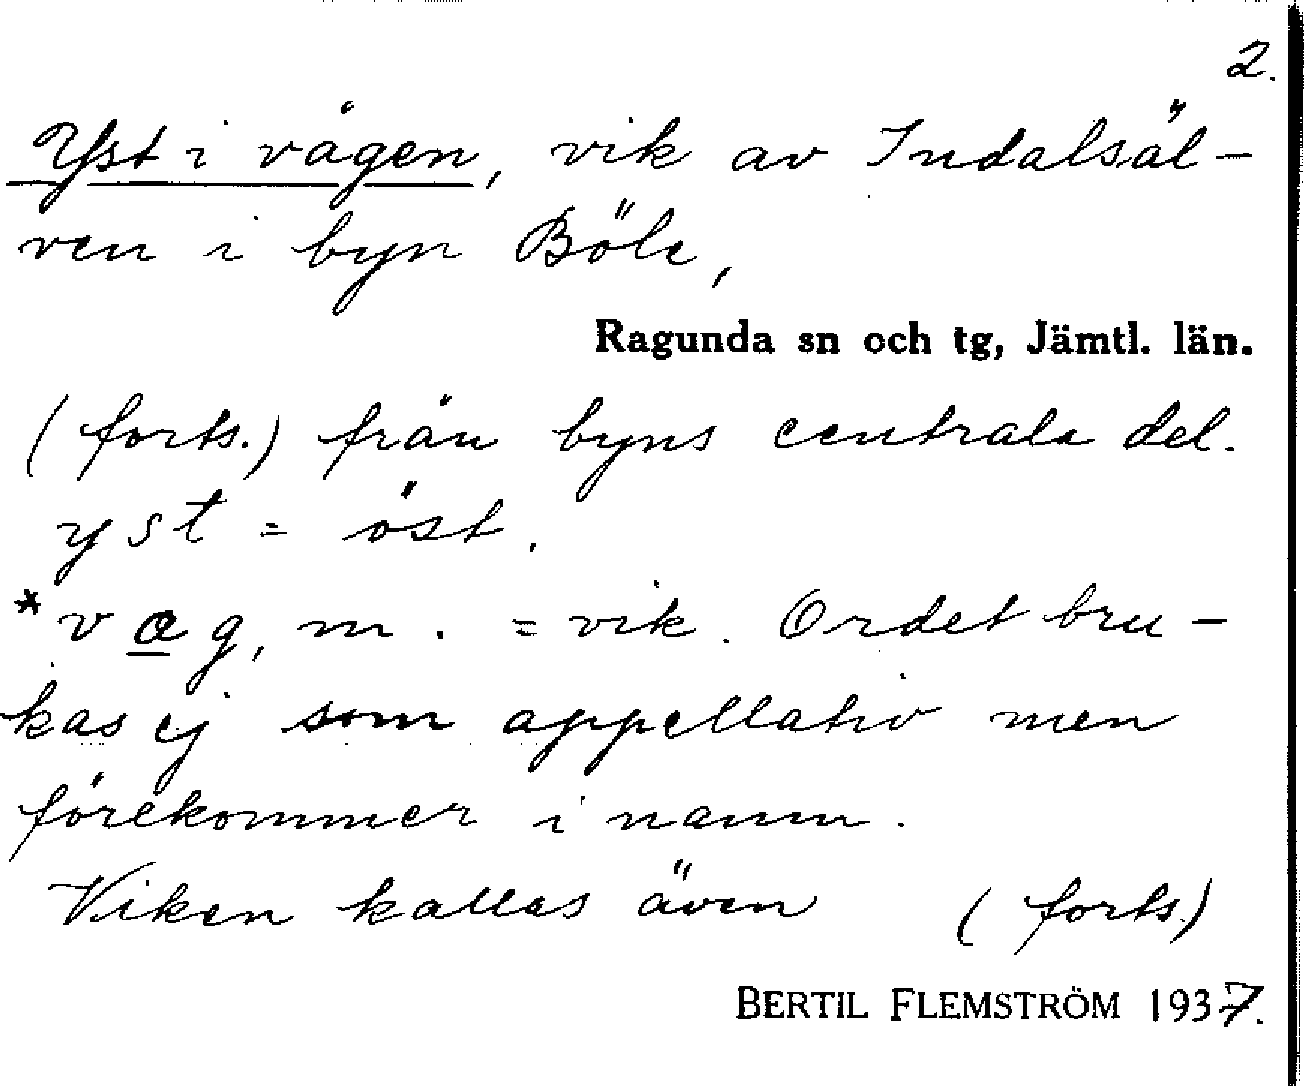 2.
Yst i vågen, vik av Indalsäl-
ven i byn Böle,
Ragunda sn och tg, Jämtl. län.
(forts.) från byns centrala del.
yst = öst.
*vag, m. = vik. Ordet bru-
kas ej som appellativ men
förekommer i namn.
Viken kallas även (forts.)
BERTIL FLEMSTRÖM 1937.